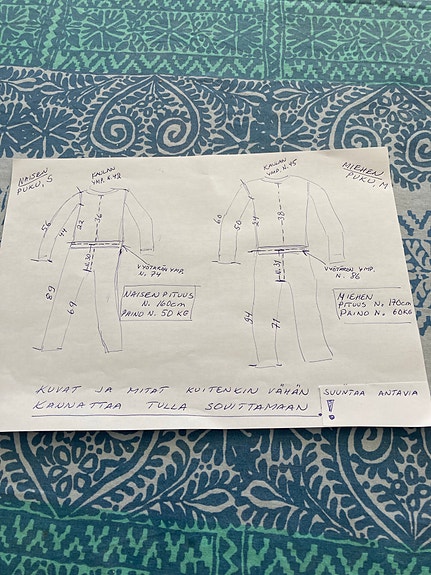 NAISEN
PUKU, S
KAULAN
YMP. N. 42
56
44
22
36
VYÖTÄRÖN YMP.
N. 74
89
69
NAISEN PITUUS
N. 160cm
PAINO N. 50 KG
MIEHEN
PUKU, M
KAULAN
YMP. N. 45
60
50
24
38
VYÖTÄRÖN YMP.
N. 86
94
71
MIEHEN
PITUUS N. 170cm
PAINO N. 60KG
KUVAT JA MITAT KUITENKIN VÄHÄN SUUNTAA ANTAVIA
KANNATTAA TULLA SOVITTAMAAN !